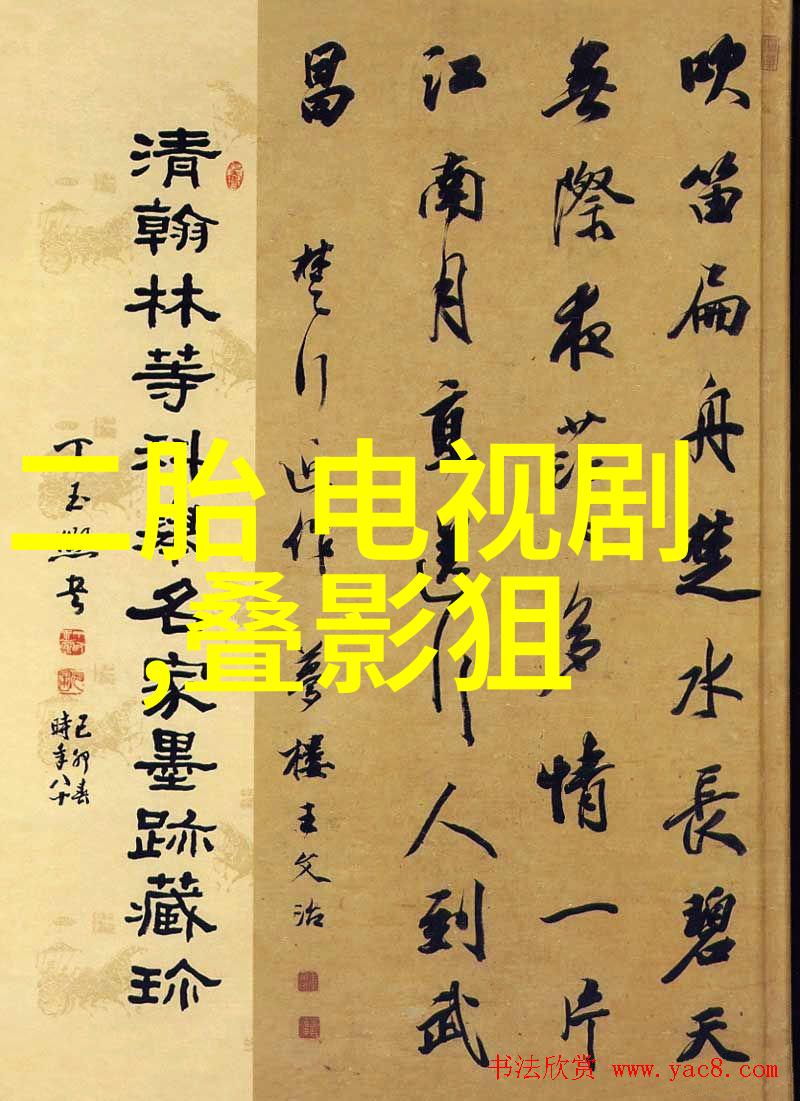 吹笛扁舟楚水長碧天
無際夜茫々多情一片
江南月直送行人到武
昌
楚行近作 夢樓王文治
清翰林等科舉名家墨跡藏珍
丁玉熙書
己卯春
時年八十
二胎 电视剧
,叠影狙
书法欣赏 www.yac8.com